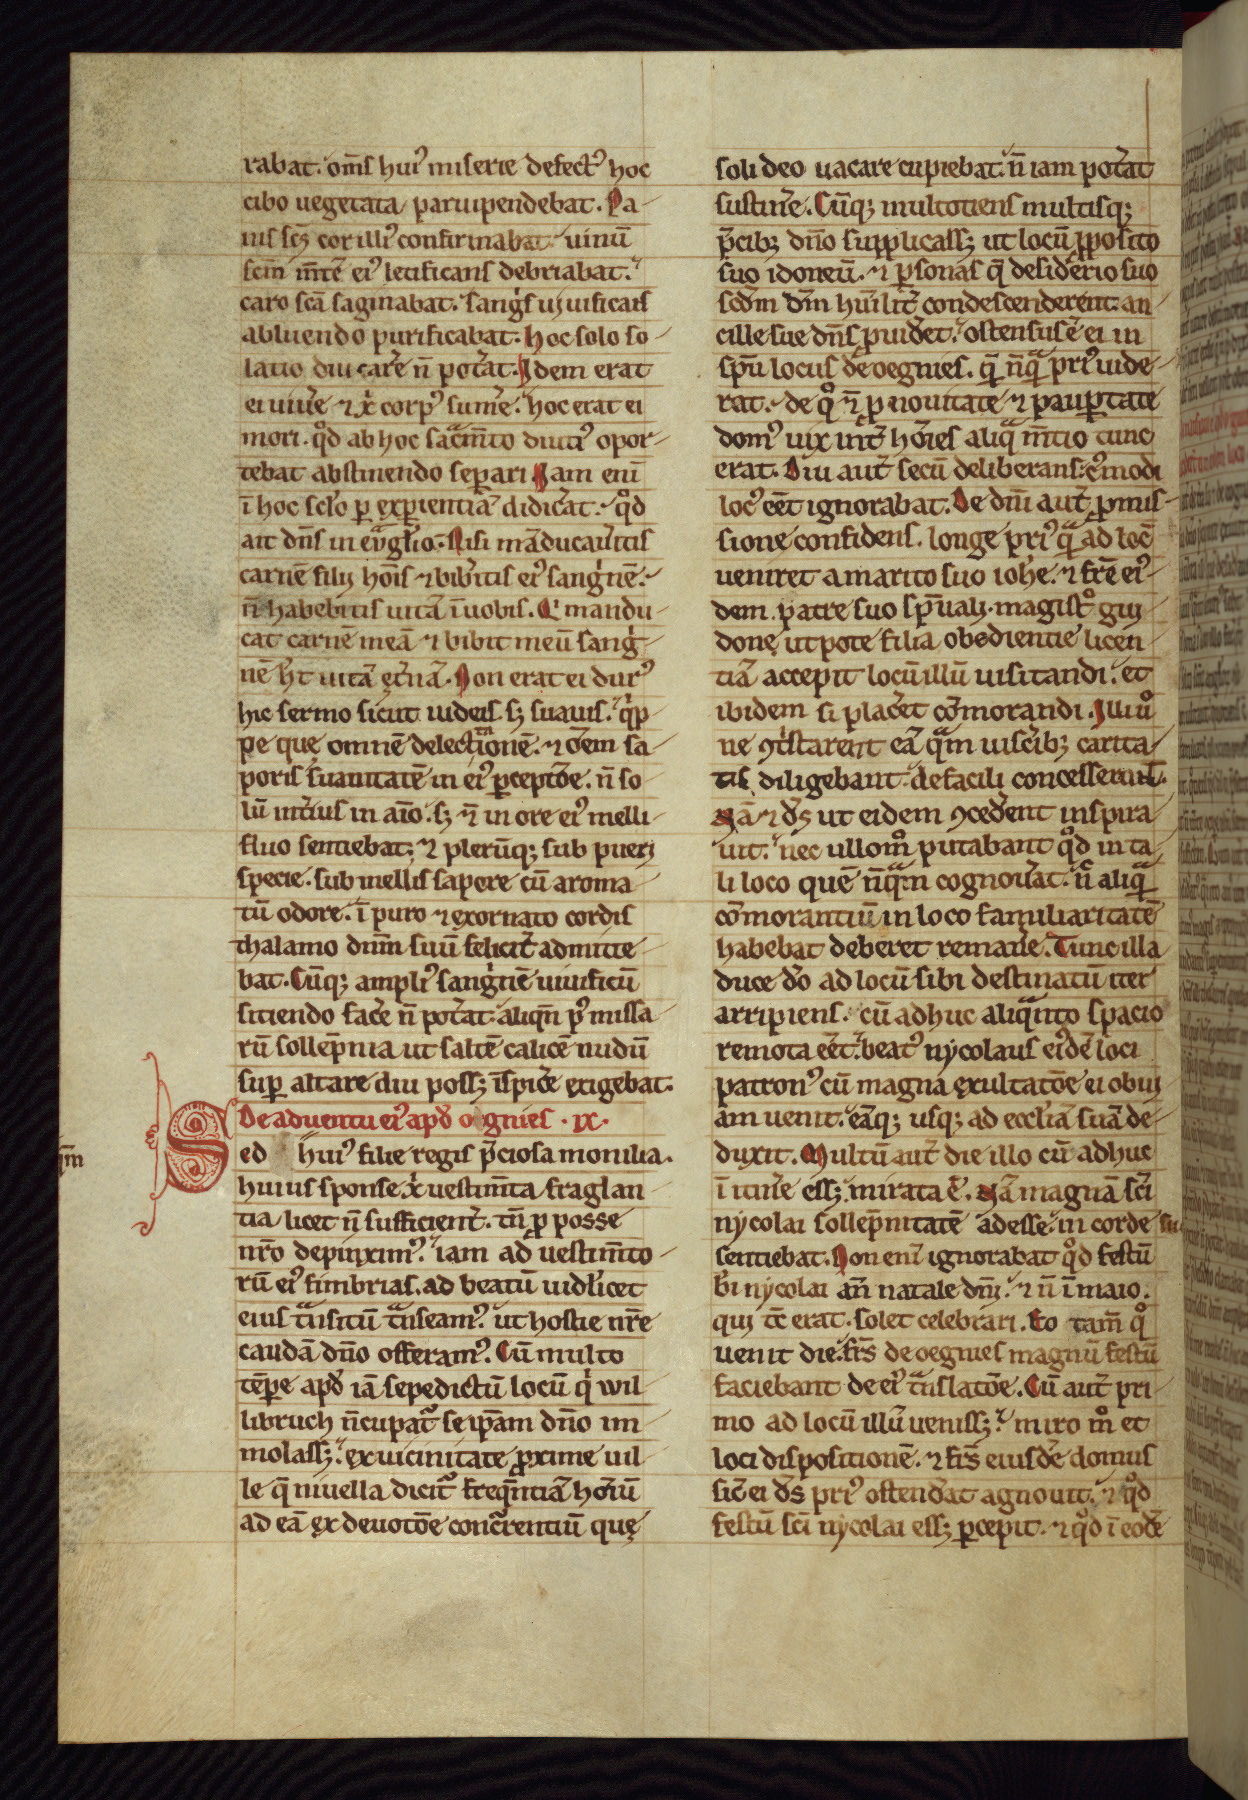 rabat. om̅s hui᾿ miserie defect᾿ hoc
cibo uegetata paruipendebat. Pa-
nis sc̅s cor illi᾿ confirmabat. uinu̅
scm̅ m̅te̅ ei᾿ letificans debriabat.
caro sc̅a saginabat. sang᾿s uiuificans
abluendo purificabat. hoc solo so-
latio diu care̅ n̅ pot̅at. Idem erat
ei uiue̅ ⁊ xp̅i corp᾿ sume̅. hoc erat ei
mori. qd̅ ab hoc sac̅m̅to diuti᾿ opor-
tebat abstinendo separi Iam eni̅
i̅ hoc sc̅lo p̲ exp̲ientia̅ didic̅at. qd̅
ait dn̅s in eu̅glio. Nisi ma̅ducau̅itis
carne̅ filij ho̅is ⁊ bib̅itis ei᾿ sang᾿ne̅.
n̅ habebitis uita̅ i̅ uobis. Q᾿ mandu-
cat carne̅ mea̅ ⁊ bibit meu̅ sang᾿-
ne̅ h̅t uita̅ ęt̅na̅. Non erat ei dur᾿
hic sermo sicut iudeis. sꝫ suauis. q᾿p-
pe que omne̅ delectatio̅ne̅. ⁊ o̅em sa-
poris suauitate̅ in ei᾿ p̲ceptio̅e. n̅ so-
lu̅ int̅ius in a̅i̅o. sꝫ ⁊ in ore ei᾿ melli-
fluo sentiebat. ⁊ pleru̅qꝫ sub pueri
specie. sub mellis sapore cu̅ aroma-
tu̅ odore. i̅ puro ⁊ exornato cordis
thalamo dn̅m suu̅ felicit̅ admitte-
bat. Cu̅qꝫ ampli᾿ sang᾿ne̅ uiuificu̅
sitiendo face̅ n̅ pot̅at. aliqn̅ p᾿ missa-
ru̅ sollep̅nia ut salte̅ calice̅ nudu̅
sup̲ altare diu possꝫ i̅spice̅ exigebat.
De aduentu ei᾿ apd̅ oegnies .ix.
Sed hui᾿ filie regis p̅ciosa monilia.
huius sponse xp̅i uestim̅ta fraglan-
tia. licet n̅ sufficient̅. tn̅ p̲ posse
nr̅o depinxim᾿. iam ad uestim̅to-
ru̅ ei᾿ fimbrias. ad beatu̅ uidlicet
eius t̅nsitu̅ t̅nseam᾿. ut hostie nr̅e
cauda̅ dn̅o offeram᾿. Cu̅ multo
te̅p̲e apd̅ ia̅ sepedictu̅ locu̅ q᾿ wil-
libruch n̅cupat᾿ se ip̅am dn̅o im-
molassꝫ. ex uicinitate p̲xime uil-
le q̅ niuella dicit᾿ freq̅ntia̅ ho̅iu̅
ad ea̅ ex deuotio̅e concurrentiu̅ quę
soli deo uacare cupiebat. n̅ iam pot̅at
sustine̅. Cu̅qꝫ multotiens multisqꝫ
p̅cibꝫ dn̅o supplicassꝫ ut locu̅ p̲posito
suo idoneu̅. ⁊ p̲sonas q̅ desiderio suo
scd̅m dm̅ hu̅ilit̅ condescenderent. an-
cille sue dn̅s p̲uid̅et. ostensus e̅ ei in
sp̅u locus de oegnies. q̅ n̅q̅ pri᾿ uide-
rat. de q° ⁊ p̲ nouitate ⁊ paup̲tate
dom᾿ uix int̅ ho̅ies aliq̅ m̅tio tunc
erat. Diu aut̅ secu̅ deliberans. c᾿modi
loc᾿ e̅et ignorabat. De dn̅i aut̅ p̲mis-
sione confidens. longe pri᾿ q̅ ad loc̅
ueniret a marito suo ioh̅e. ⁊ fr̅e ei᾿-
dem. patre suo sp̅uali. magist̅o gui-
done, utpote filia obedientie licen-
tia̅ accepit locu̅ illu̅ uisitandi. et
ibidem si plac̅et co̅morandi. Illi u°
ne ꝯt᾿starent ea̅ q̅m uisc̅ibꝫ carita-
tis diligebant. de facili concesserunt.
Na̅ ⁊ ds̅ ut eidem ꝯced̅ent inspira-
uit. nec ullom° putabant qd̅ in ta-
li loco que̅ n̅q̅m cognou̅at. n̅ aliq̅
co̅morantiu̅ in loco familiaritate̅
habebat deberet remane̅. Tunc illa
duce do̅ ad locu̅ sibi destinatu̅ iter
arripiens. cu̅ adhuc aliq̅nto spacio
remota e̅et. beat᾿ nycolaus ei᾿de̅ loci
patron᾿ cu̅ magna exultatio̅e ei obui-
am uenit. ea̅qꝫ usqꝫ ad eccli̅a̅ sua̅ de-
duxit. Multu̅ aut̅ die illo cu̅ adhuc
i̅ itine̅ essꝫ. mirata e̅. Na̅ magna̅ sc̅i
nycolai sollep̅nitate̅ adesse in corde su
sentiebat. Non eni̅ ignorabat qd̅ festu̅
bi̅ nycolai an̅ natale dn̅i. ⁊ n̅ i̅ maio.
qui tc̅ erat. solet celebrari. Eo tam̅ q°
uenit die. fr̅s de oegnies magnu̅ festu̅
faciebant de ei᾿ t̅nslatio̅e. Cu̅ aut̅ pri-
mo ad locu̅ illu̅ uenissꝫ. miro m° et
loci dispositione̅. ⁊ fr̅s eiusde̅ domus
sic̅ ei ds̅ pri᾿ ostend̅at agnouit. ⁊ qd̅
festu̅ sc̅i nycolai essꝫ p̲cepit. ⁊ qd̅ i̅ eode̅